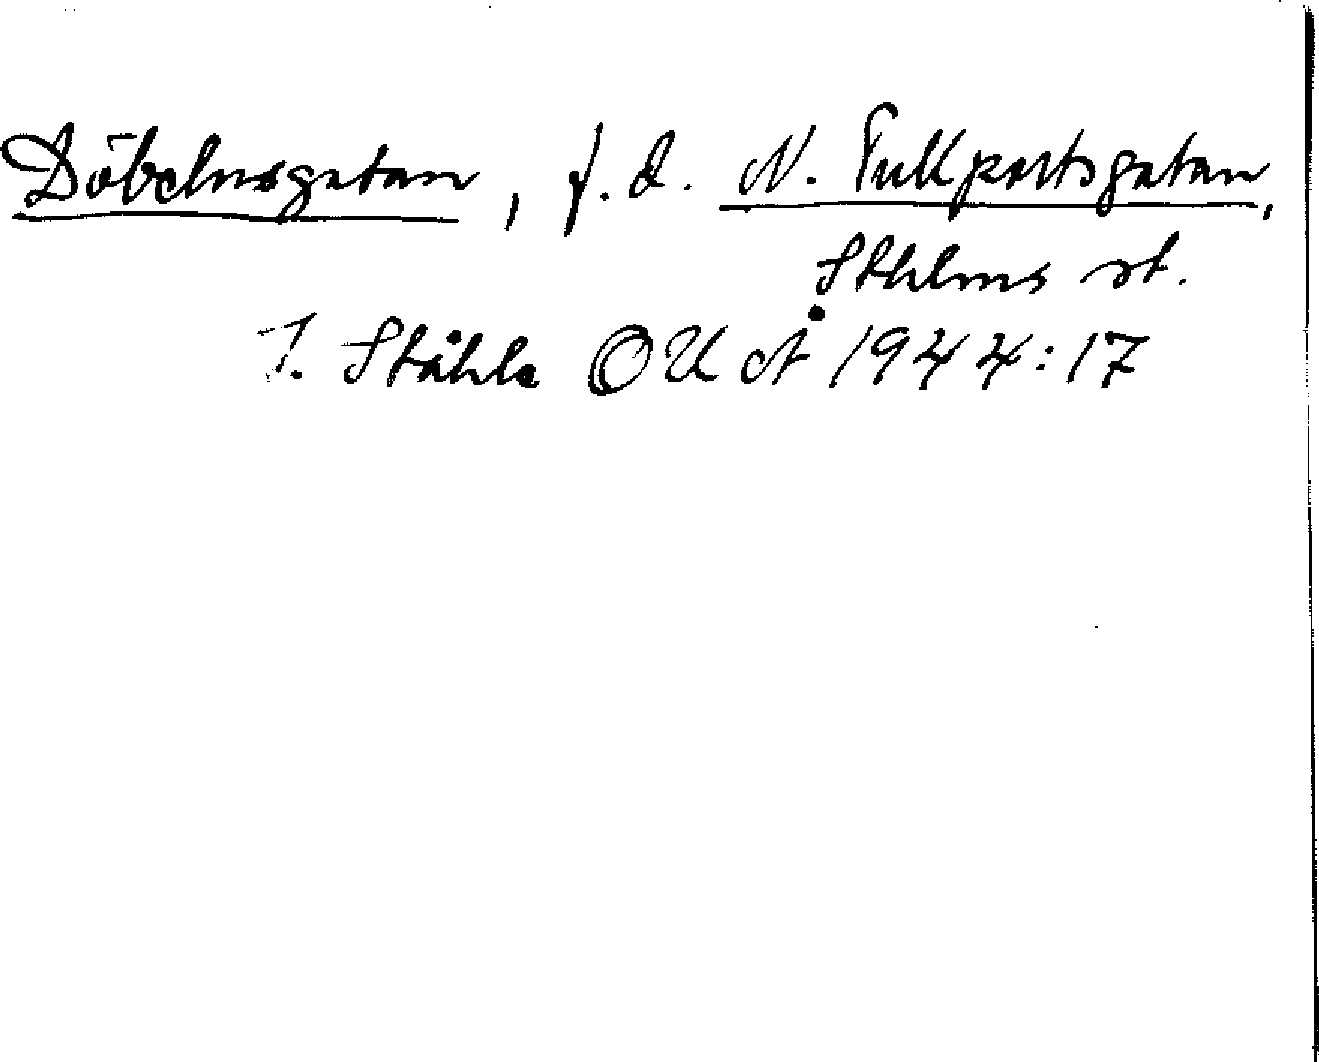 Döbelnsgatan, f.d. N. Tullportsgatan,
Sthlms st.
I. Ståhle OUÅ 1944:17